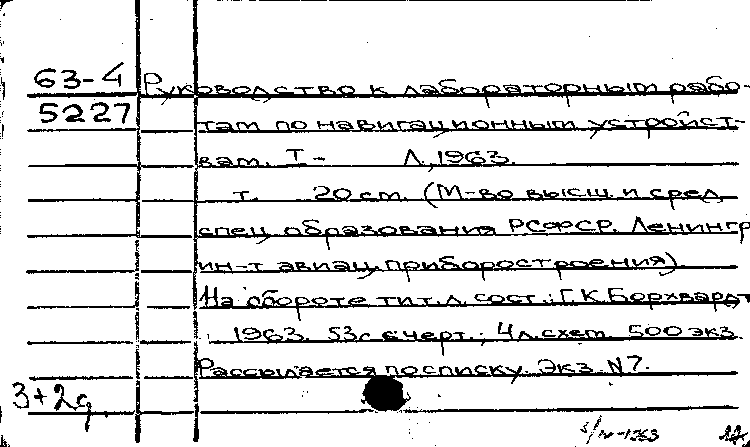 63-4 Руководство к лабораторным рабо-
5227 там по навигационным устройст-
вам. I- Л., 1963.
т. 20 см. (М-во высш. и сред.
спец. образования РСФСР. Ленингр.
ин-т авиац. приборостроения)
На обороте тит. л. сост.: Г.К. Борхвардт
1963. 53 с. с черт.; 4 л. схем. 500 экз.
Рассылается по списку. Экз. N7.
3+2д.